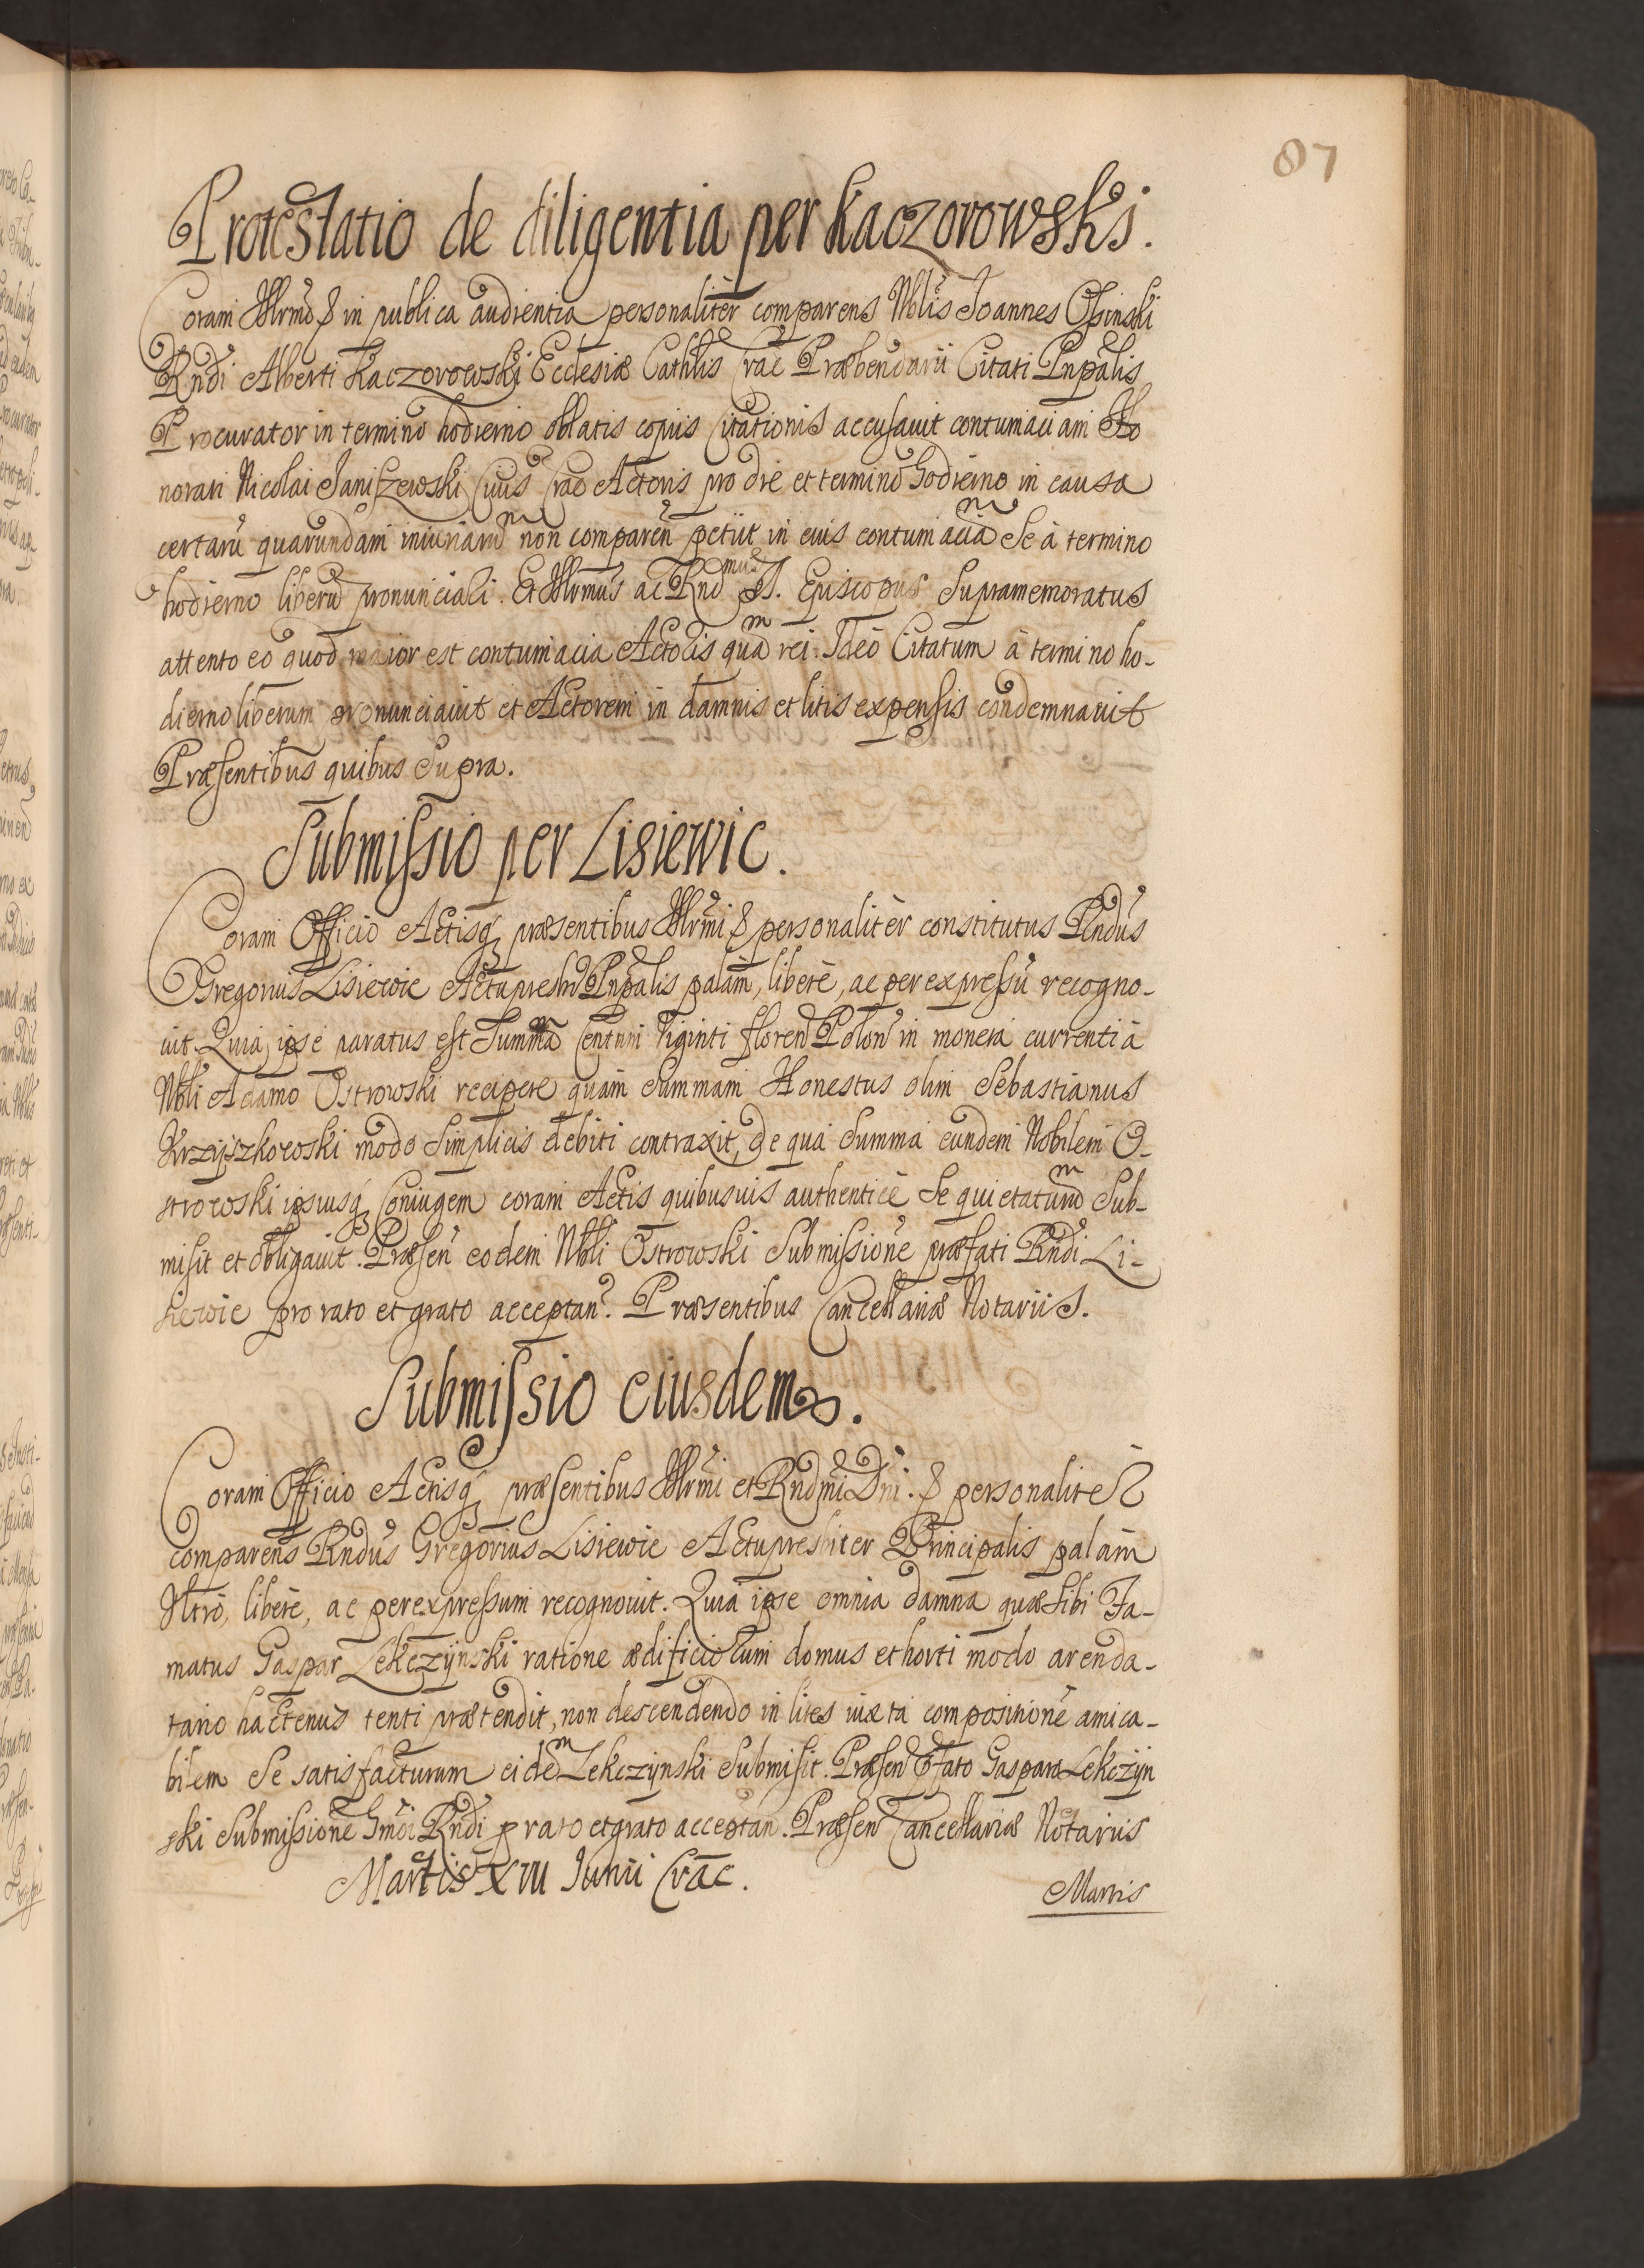 87
Protestatio de diligentia per Kaczorowski.
Coram Illrmo & in publica audientia personaliter comparens Nblis Joannes Osinski
Rndi Alberti Kaczorowski Ecclesiæ Cathlis Crac Præbendarii Citati Pnpalis
Procurator in termino hodierno oblatis copiis Citationis accusavit contumaciam Ho
norati Nicolai Janiszewski Civis Crac Actoris pro die et termino hodierno in causa
certaru quarundam iniuriarum non comparen petiit in eius contumaciam Se à termino
hodierno liberu pronunciali. Et Illrmus ac Rndmus D. Episcopus Supramemoratus
attento eo quod maior est contumacia Actoris quam rei. Ideo Citatum à termino ho-
dierno liberum pronunciavit et Actorem in damnis et litis expensis condemnavit
Præsentibus quibus Supra.
Submissio per Lisiewic.
Coram Officio Actisq præsentibus Illrmi & personaliter constitutus Rndus
Gregorius Lisiewic Actupresbr Pnpalis palam, liberè, ac per expressu recogno-
vit. Quia ipse paratus est Summam Centum Viginti floren Polon in moneta currenti à
Nbli Adamo Ostrowski recipere quam Summam Honestus olim Sebastianus
Krzyszkowski modo Simplicis debiti contraxit, de qua Summa eundem Nobilem O-
strowski ipsiusq Coniugem coram Actis quibusvis authenticè Se quietaturum Sub-
misit et obligavit. Præsen eodem Nbli Ostrowski Submissione præfati Rndi Li-
siewic pro rato et grato acceptan. Præsentibus Cancellariæ Notariis.
Submissio eiusdem.
Coram Officio Actisq præsentibus Illrmi et Rndmi Dni. & personaliter
comparens Rndus Gregorius Lisiewic Actupresbiter Principalis palam
Vltrò, liberè, ac per expressum recognovit. Quia ipse omnia damna quæ Sibi Fa-
matus Gaspar Lekczynski ratione ædificiorum domus et horti modo arenda-
tario hactenus tenti prætendit, non descendendo in lites iuxta compositione amica-
bilem Se satisfacturum eidem Lekczynski Submisit. Præsen Pfato Gasparo Lekczyn
ski Submissione Rndi p rato et grato acceptan. Præsen Cancellariæ Notariis
Martis XVII Junii Crac.
Martis